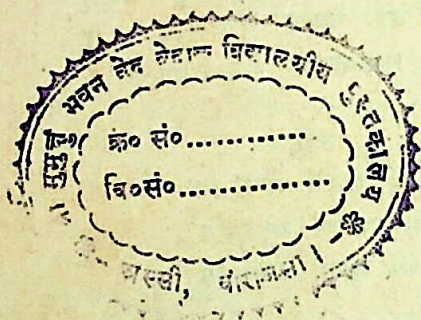 मुमुक्षु भवन वेद वेदाङ्ग विद्यालयीय पुस्तकालय
क्र० सं०............
वि०सं०...............
अस्सी, वाराणसी।